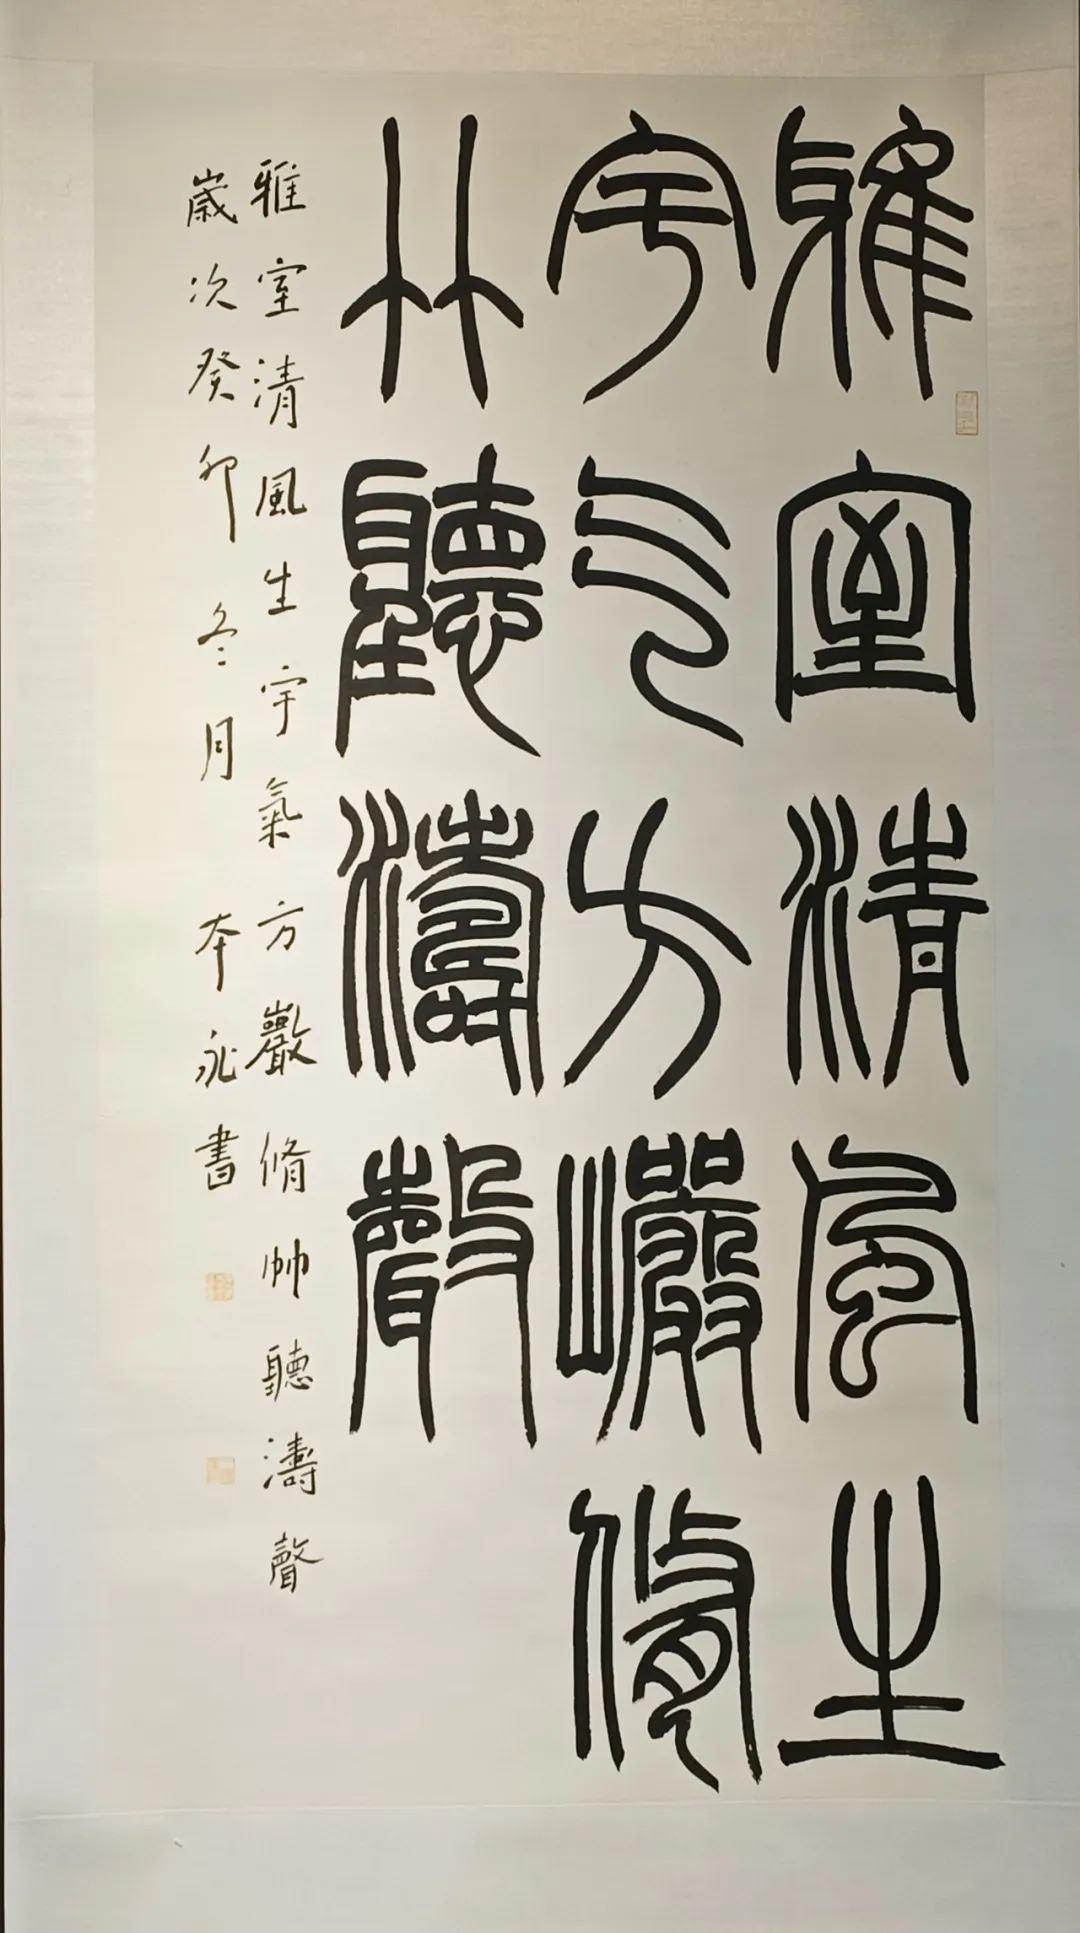 雅室清風生
宇气方巖脩
竹聽濤聲
雅室清風生宇氣方巖脩竹聽濤聲
歲次癸卯冬月 本永書